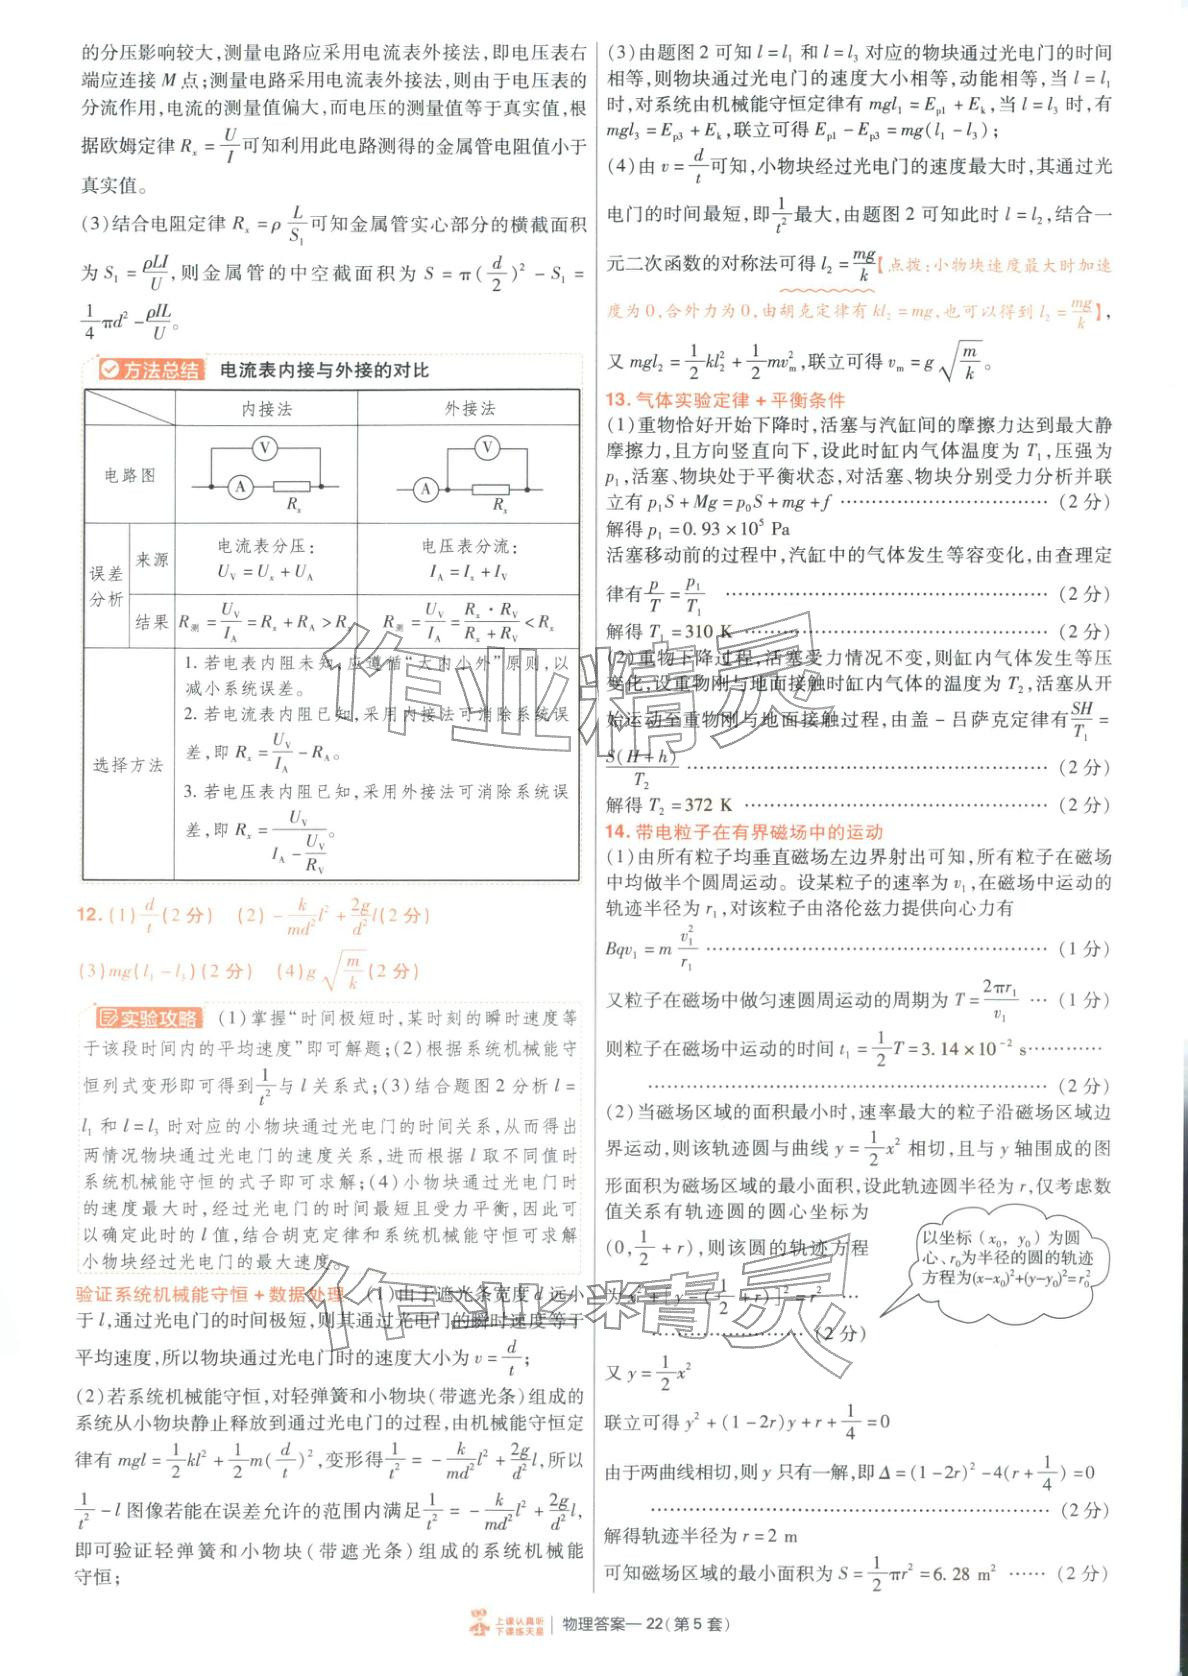 的分压影响较大,测量电路应采用电流表外接法,即电压表右
端应连接 M 点;测量电路采用电流表外接法,则由于电压表的
分流作用,电流的测量值偏大,而电压的测量值等于真实值,根
据欧姆定律 Rₓ = U/I 可知利用此电路测得的金属管电阻值小于
真实值。
(3)结合电阻定律 Rₓ = ρ L/S₁ 可知金属管实心部分的横截面积
为 S₁ = ρLI/U,则金属管的中空截面积为 S = π(d/2)² − S₁ =
1/4 πd² − ρIL/U。
方法总结 电流表内接与外接的对比
内接法 外接法
电路图 V A Rₓ V A Rₓ
误差分析 来源 电流表分压: U_V = Uₓ + U_A 电压表分流: I_A = Iₓ + I_V
结果 R测 = U_V/I_A = Rₓ + R_A > Rₓ R测 = U_V/I_A = Rₓ·R_V/(Rₓ + R_V) < Rₓ
选择方法
1. 若电表内阻未知,应遵循“大内小外”原则,以
减小系统误差。
2. 若电流表内阻已知,采用内接法可消除系统误
差,即 Rₓ = U_V/I_A − R_A。
3. 若电压表内阻已知,采用外接法可消除系统误
差,即 Rₓ = U_V/(I_A − U_V/R_V)。
12. (1) d/t (2 分) (2) − k/(md²) l² + 2g/d² l (2 分)
(3) mg(l₁ − l₃) (2 分) (4) g√(m/k) (2 分)
实验攻略 (1)掌握“时间极短时,某时刻的瞬时速度等
于该段时间内的平均速度”即可解题;(2)根据系统机械能守
恒列式变形即可得到 1/t² 与 l 关系式;(3)结合题图 2 分析 l =
l₁ 和 l = l₃ 时对应的小物块通过光电门的时间关系,从而得出
两情况物块通过光电门的速度关系,进而根据 l 取不同值时
系统机械能守恒的式子即可求解;(4)小物块通过光电门时
的速度最大时,经过光电门的时间最短且受力平衡,因此可
以确定此时的 l 值,结合胡克定律和系统机械能守恒可求解
小物块经过光电门的最大速度。
验证系统机械能守恒 + 数据处理 (1)由于遮光条宽度 d 远小
于 l,通过光电门的时间极短,则其通过光电门的瞬时速度等于
平均速度,所以物块通过光电门时的速度大小为 v = d/t;
(2)若系统机械能守恒,对轻弹簧和小物块(带遮光条)组成的
系统从小物块静止释放到通过光电门的过程,由机械能守恒定
律有 mgl = 1/2 kl² + 1/2 m(d/t)²,变形得 1/t² = − k/(md²) l² + 2g/d² l,所以
1/t² − l 图像若能在误差允许的范围内满足 1/t² = − k/(md²) l² + 2g/d² l,
即可验证轻弹簧和小物块(带遮光条)组成的系统机械能
守恒;
(3)由题图 2 可知 l = l₁ 和 l = l₃ 对应的物块通过光电门的时间
相等,则物块通过光电门的速度大小相等,动能相等,当 l = l₁
时,对系统由机械能守恒定律有 mgl₁ = E_p1 + E_k,当 l = l₃ 时,有
mgl₃ = E_p3 + E_k,联立可得 E_p1 − E_p3 = mg(l₁ − l₃);
(4)由 v = d/t 可知,小物块经过光电门的速度最大时,其通过光
电门的时间最短,即 1/t² 最大,由题图 2 可知此时 l = l₂,结合一
元二次函数的对称法可得 l₂ = mg/k【点拨:小物块速度最大时加速
度为 0,合外力为 0,由胡克定律有 kl₂ = mg,也可以得到 l₂ = mg/k】,
又 mgl₂ = 1/2 kl₂² + 1/2 mv_m²,联立可得 v_m = g√(m/k)。
13. 气体实验定律 + 平衡条件
(1)重物恰好开始下降时,活塞与汽缸间的摩擦力达到最大静
摩擦力,且方向竖直向下,设此时缸内气体温度为 T₁,压强为
p₁,活塞、物块处于平衡状态,对活塞、物块分别受力分析并联
立有 p₁S + Mg = p₀S + mg + f ………… (2 分)
解得 p₁ = 0.93 × 10⁵ Pa
活塞移动前的过程中,汽缸中的气体发生等容变化,由查理定
律有 p/T = p₁/T₁ ………… (2 分)
解得 T₁ = 310 K ………… (2 分)
(2)重物下降过程,活塞受力情况不变,则缸内气体发生等压
变化,设重物刚与地面接触时缸内气体的温度为 T₂,活塞从开
始运动至重物刚与地面接触过程,由盖 − 吕萨克定律有 SH/T₁ =
S(H + h)/T₂ ………… (2 分)
解得 T₂ = 372 K ………… (2 分)
14. 带电粒子在有界磁场中的运动
(1)由所有粒子均垂直磁场左边界射出可知,所有粒子在磁场
中均做半个圆周运动。设某粒子的速率为 v₁,在磁场中运动的
轨迹半径为 r₁,对该粒子由洛伦兹力提供向心力有
Bqv₁ = m v₁²/r₁ ………… (1 分)
又粒子在磁场中做匀速圆周运动的周期为 T = 2πr₁/v₁ … (1 分)
则粒子在磁场中运动的时间 t₁ = 1/2 T = 3.14 × 10⁻² s …………
………… (2 分)
(2)当磁场区域的面积最小时,速率最大的粒子沿磁场区域边
界运动,则该轨迹圆与曲线 y = 1/2 x² 相切,且与 y 轴围成的图
形面积为磁场区域的最小面积,设此轨迹圆半径为 r,仅考虑数
值关系有轨迹圆的圆心坐标为
(0, 1/2 + r),则该圆的轨迹方程
为 x² + [y − (1/2 + r)]² = r² …
………… (2 分)
以坐标 (x₀, y₀) 为圆
心、r₀为半径的圆的轨迹
方程为(x−x₀)²+(y−y₀)²=r₀²
又 y = 1/2 x²
联立可得 y² + (1 − 2r)y + r + 1/4 = 0
由于两曲线相切,则 y 只有一解,即 Δ = (1 − 2r)² − 4(r + 1/4) = 0
………… (2 分)
解得轨迹半径为 r = 2 m
可知磁场区域的最小面积为 S = 1/2 πr² = 6.28 m² …… (2 分)
作业精灵
作业精灵
上课认真听
下课练天星
物理答案—22(第 5 套)